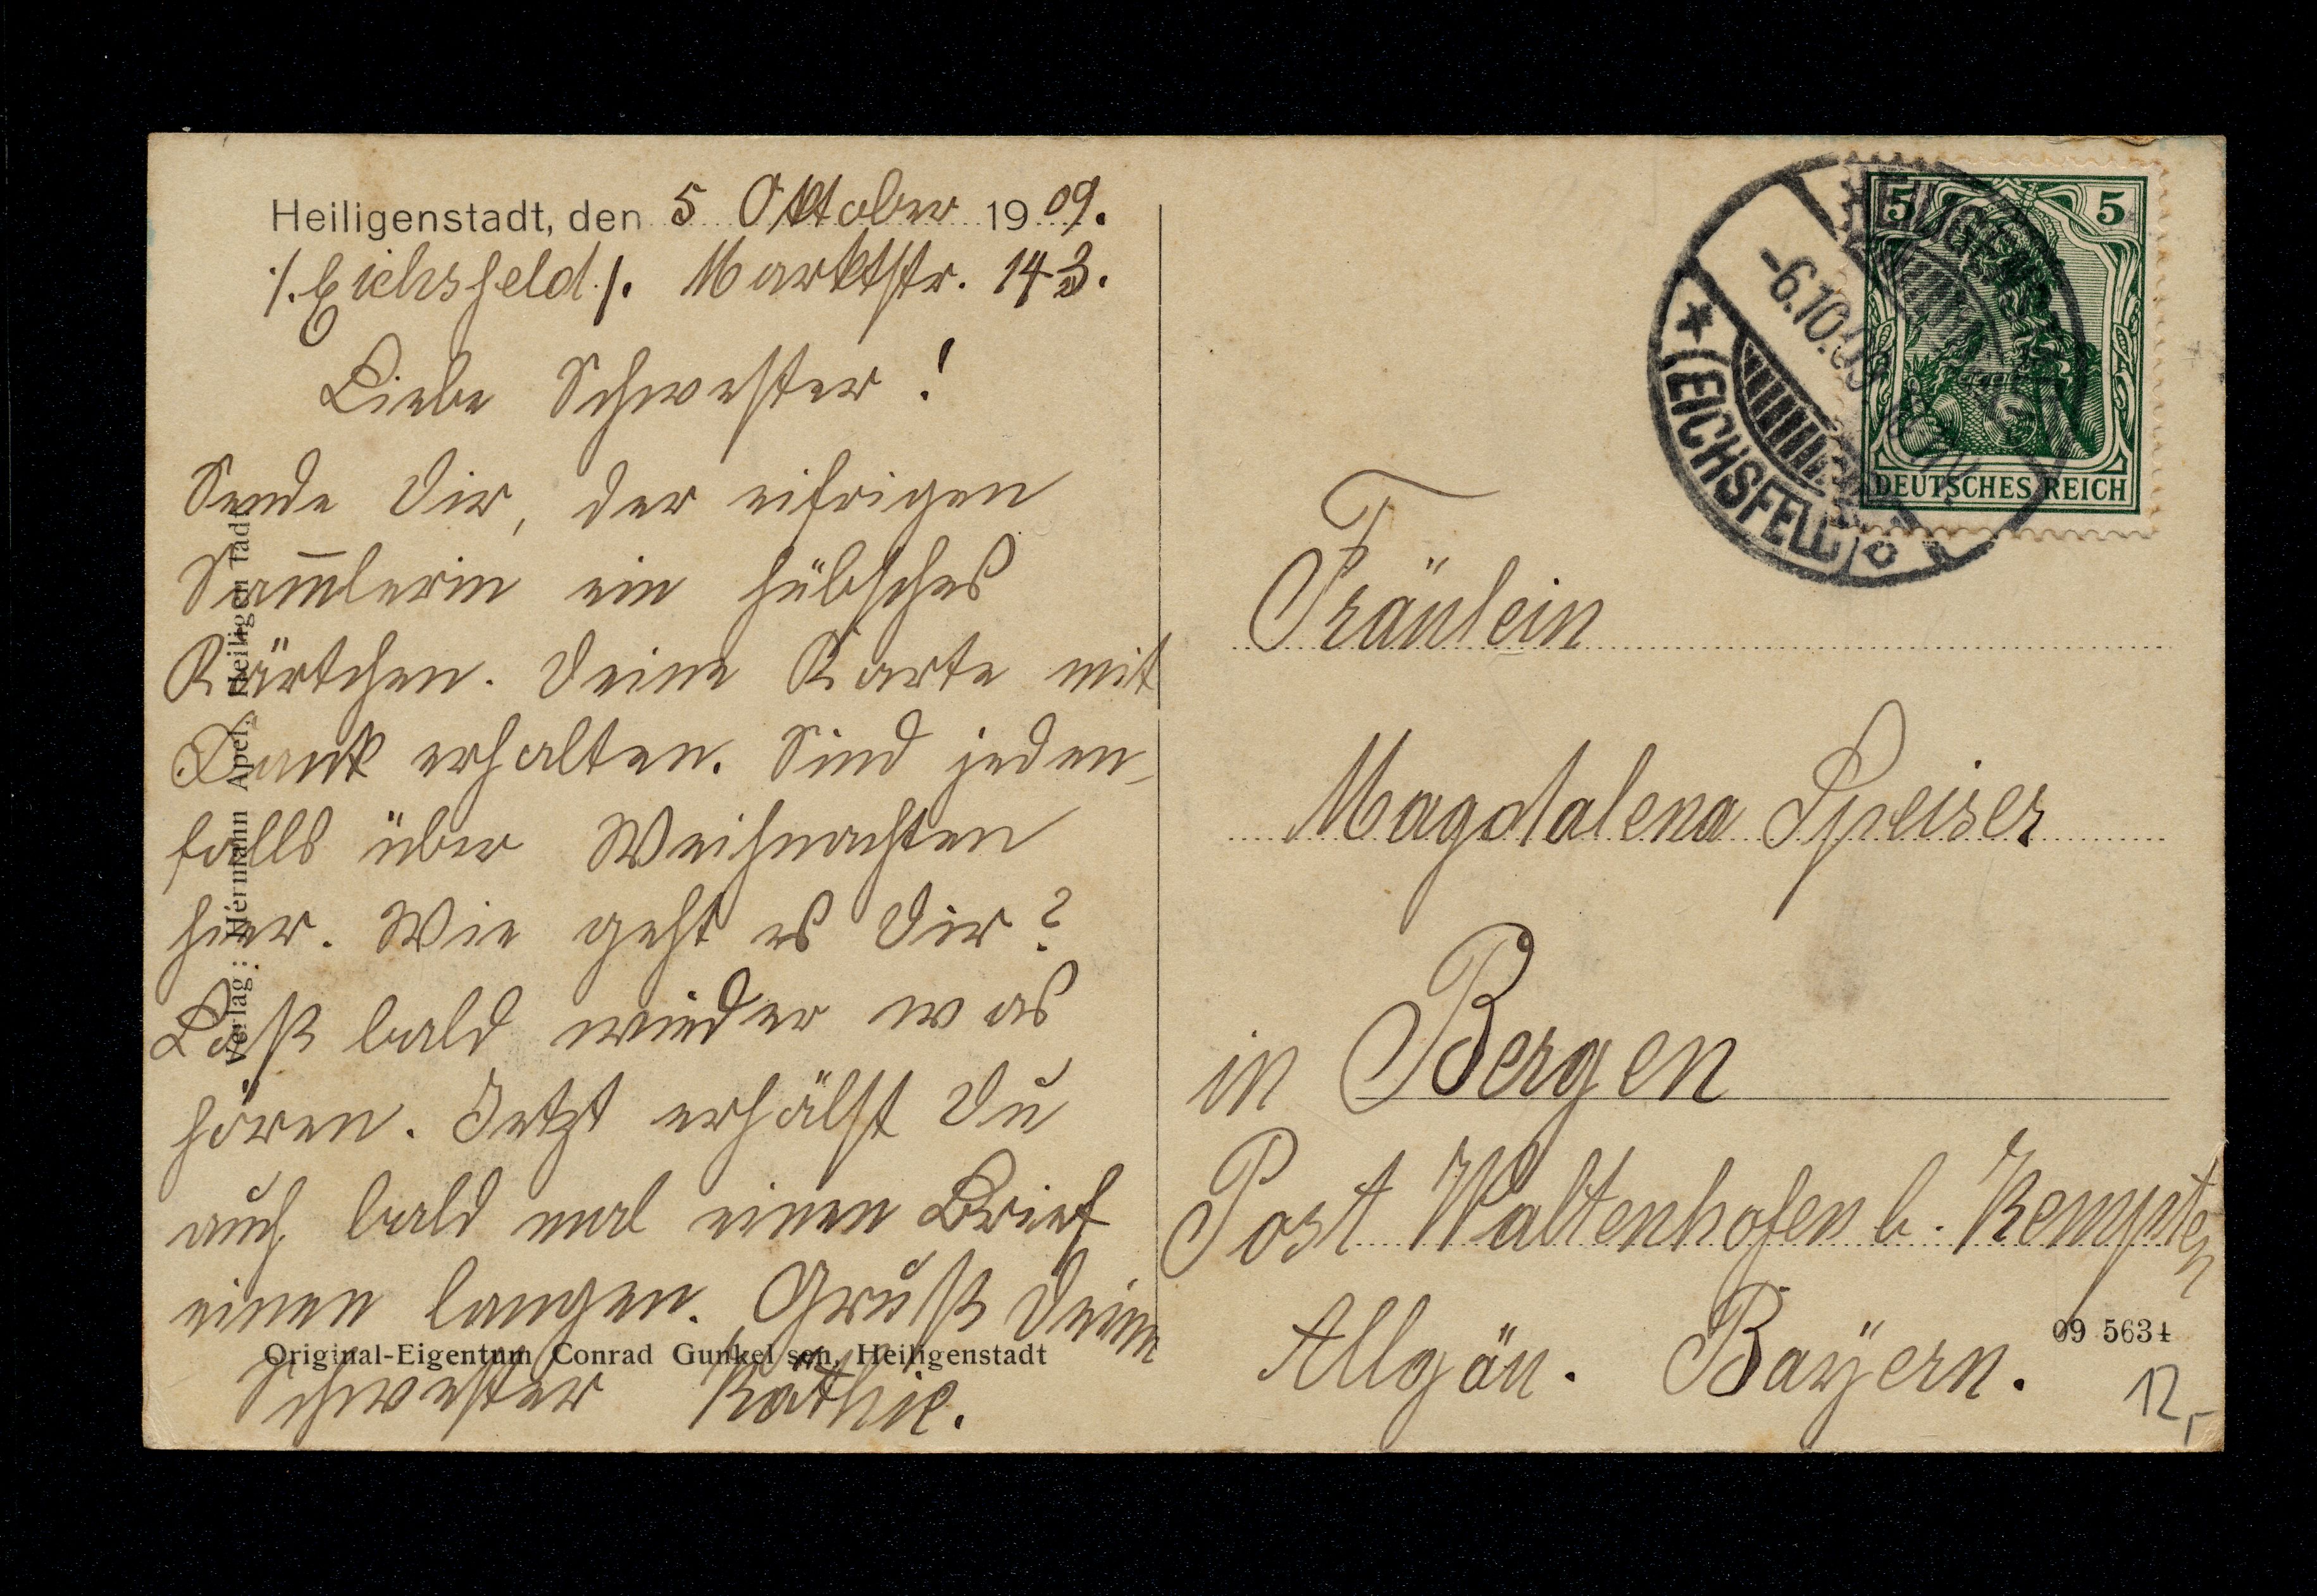 Heiligenstadt, den 5 Oktober 1909.
/. Eichsfeld ./. Marktstr. 143.
Liebe Schwester!
Sende Dir, der eifrigen
Sam̅lerin ein hübsches
Kärtchen. Deine Karte mit
Dank erhalten. Sind jeden-
falls über Weihnachten
hier. Wie geht es Dir?
Laß bald wieder was
hören. Jetzt erhälst Du
auch bald mal einen Brief
einen langen. Gruß Deine
Schwester Käthie.
Original-Eigentum Conrad Gunkel sen. Heiligenstadt
Verlag: Hermann Apel, Heiligenstadt
5 5
DEUTSCHES REICH
-6.10.09
(EICHSFELD)
Fräulein
Magdalena Speiser
in Bergen
Post Waltenhofen b. Kempten
Allgäu. Bayern.
09 5634
12,-